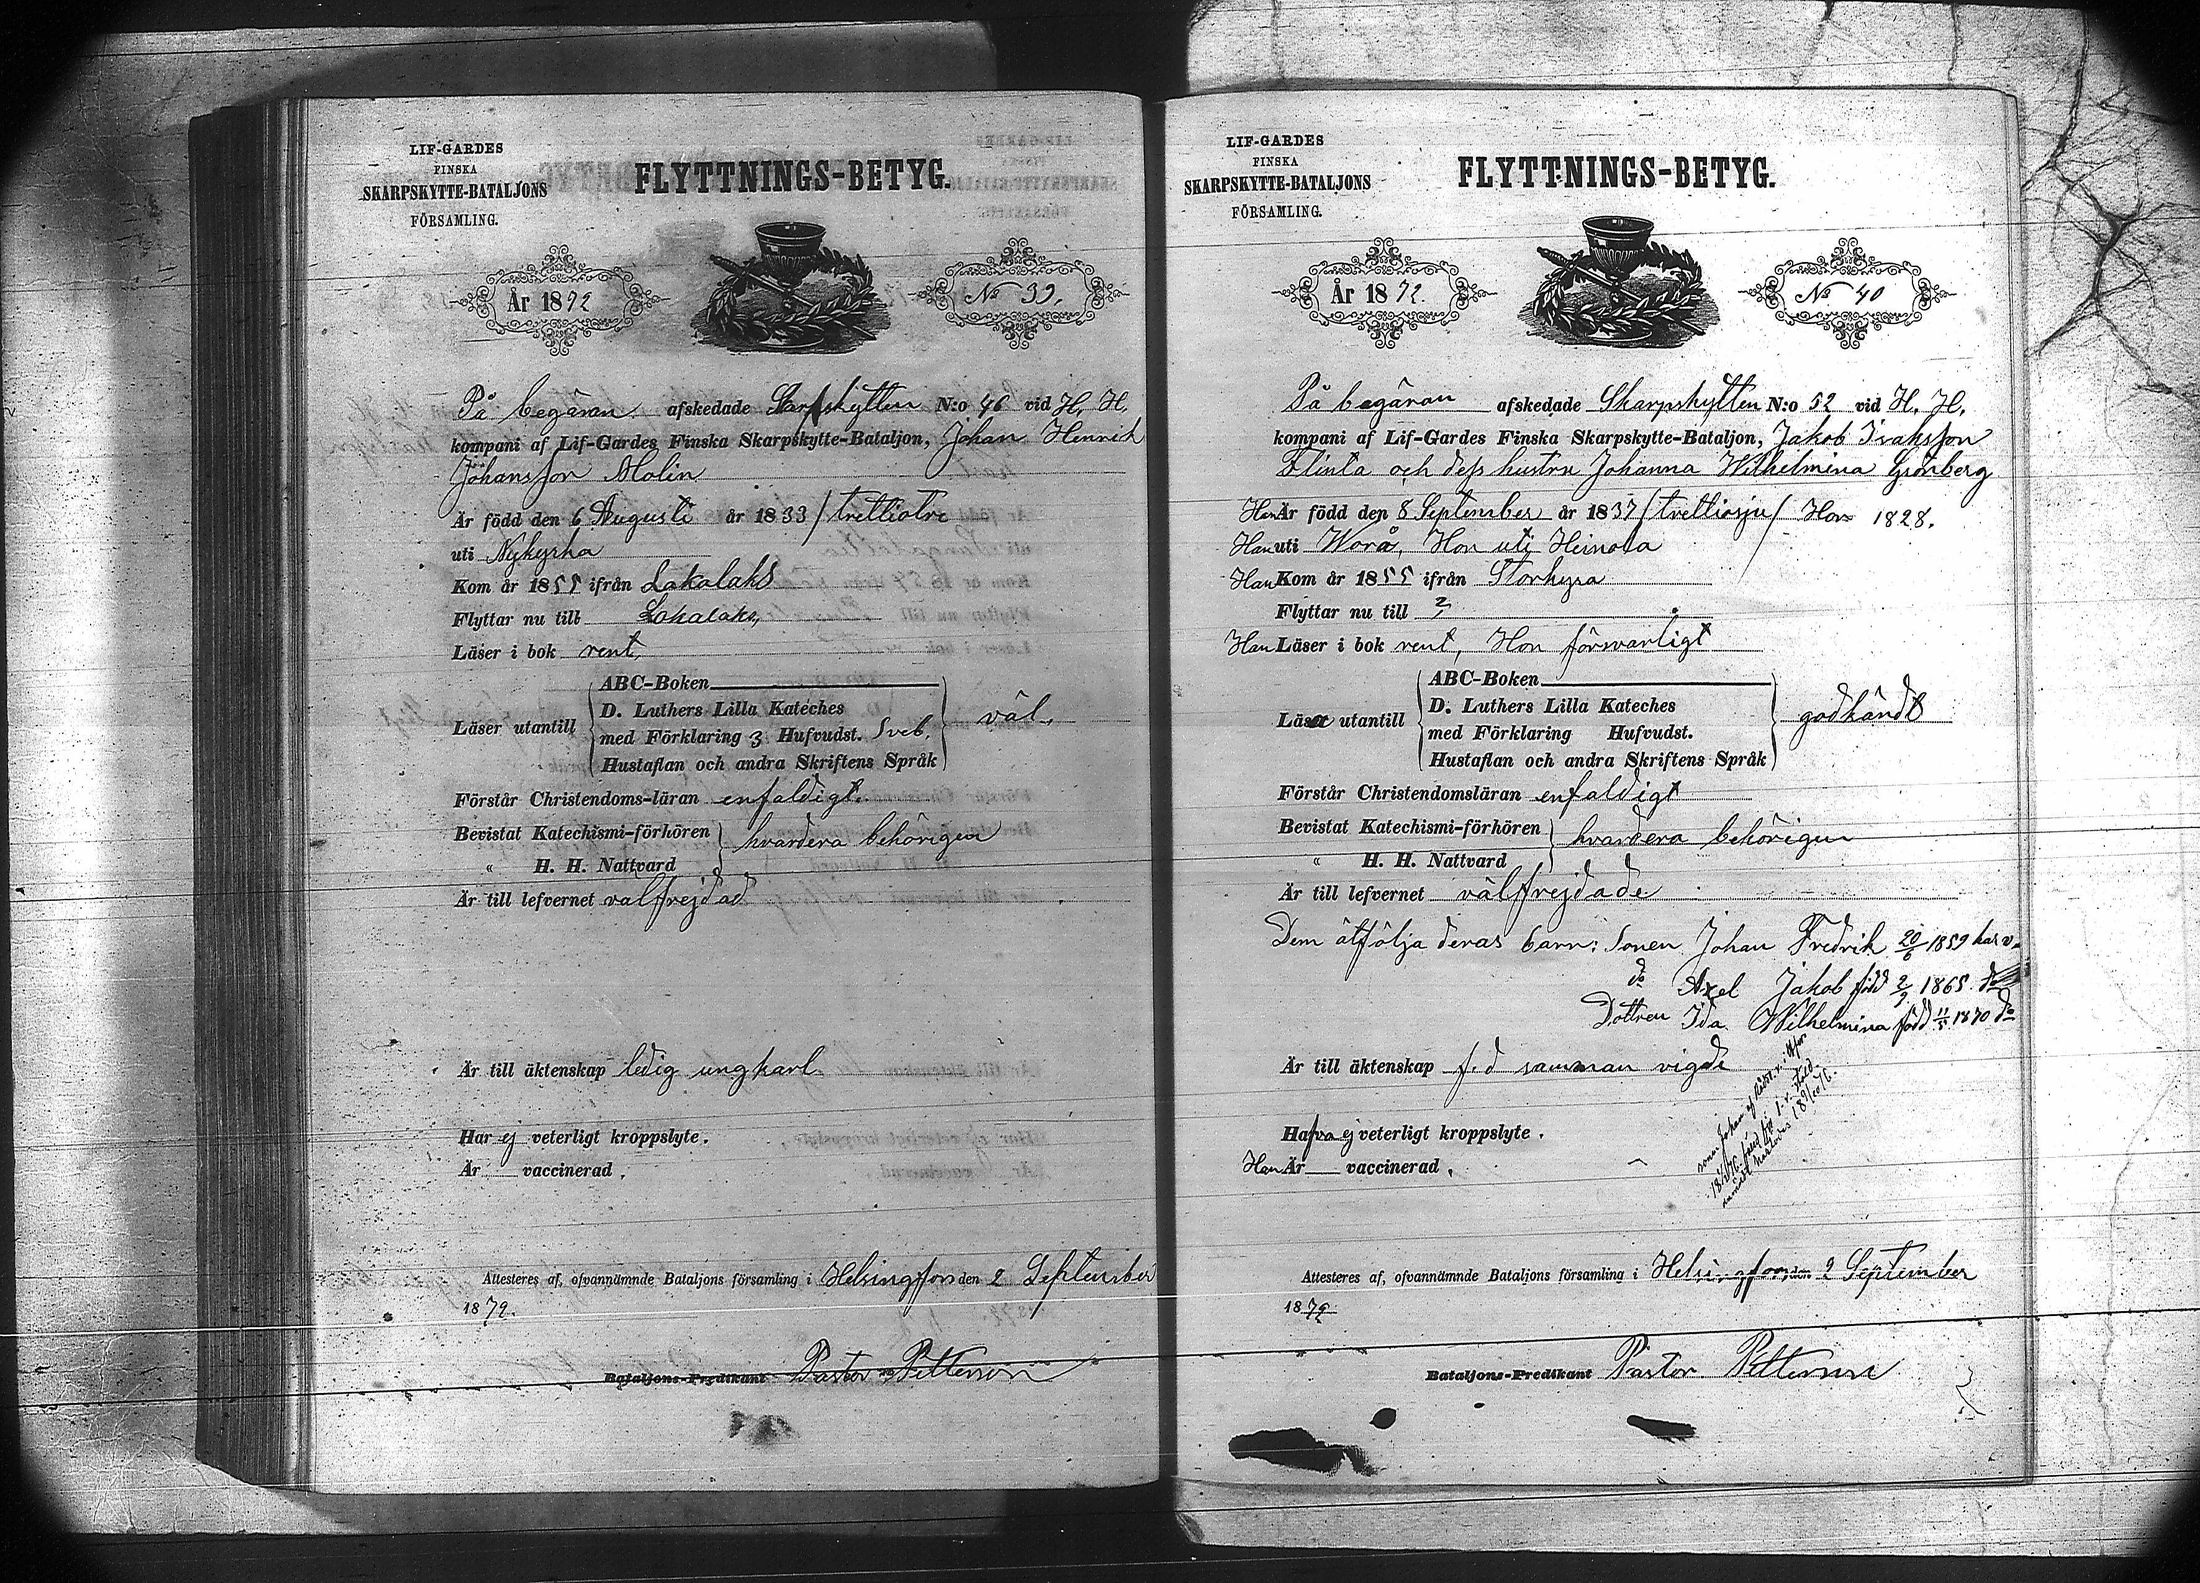 LIF-GARDES
FINSKA
SKARPSKYTTE-BATALJONS
FÖRSAMLING.
FLYTTNINGS-BETYG.
År 1872
No 39.
På begäran afskedade Skarpskytten N:o 46 vid H. H.
kompani af Lif-Gardes Finska Skarpskytte-Bataljon, Johan Henrik
Johansson Molin
Är född den 6 Augusti år 1833 / trettiotre
uti Nykyrka
Kom år 1855 ifrån Lokalaks
Flyttar nu till Lokalaks,
Läser i bok rent,
Läser utantill
ABC-Boken
D. Luthers Lilla Kateches
med Förklaring 3 Hufvudst. Sveb.
Hustaflan och andra Skriftens Språk
väl.
Förstår Christendoms-läran enfaldigt.
Bevistat Katechismi-förhören
" H. H. Nattvard
hvardera behörigen
Är till lefvernet välfrejdad
Är till äktenskap ledig ungkarl.
Har ej veterligt kroppslyte.
Är vaccinerad.
Attesteres af, ofvannämnde Bataljons församling i Helsingfors den 2 September
1872.
Bataljons-Predikant Pastor Petterson
LIF-GARDES
FINSKA
SKARPSKYTTE-BATALJONS
FÖRSAMLING.
FLYTTNINGS-BETYG.
År 1872.
No 40
På begäran afskedade Skarpskytten N:o 52 vid H. H.
kompani af Lif-Gardes Finska Skarpskytte-Bataljon, Jakob Isaksson
Flinta och dess hustru Johanna Wilhelmina Grönberg
Han Är född den 8 September år 1837 / trettiosju / Hon 1828.
Han uti Worå, Hon uti Heinola
Han Kom år 1855 ifrån Storkyro
Flyttar nu till ?
Han Läser i bok rent, Hon försvarligt
Läsa utantill
ABC-Boken
D. Luthers Lilla Kateches
med Förklaring Hufvudst.
Hustaflan och andra Skriftens Språk
godkändt
Förstår Christendomsläran enfaldigt
Bevistat Katechismi-förhören
" H. H. Nattvard
hvardera behörigen
Är till lefvernet välfrejdade
Dem åtfölja deras barn: Sonen Johan Fredrik 20/6 1859 har v.
do Axel Jakob född 2/9 1865. do
Dottren Ida Wilhelmina född 11/5 1870 do
Är till äktenskap f. d. samman vigde
Hafva ej veterligt kroppslyte.
Han Är vaccinerad.
Attesteres af, ofvannämnde Bataljons församling i Helsingfors den 2 September
1872
Bataljons-Predikant Pastor Petterson